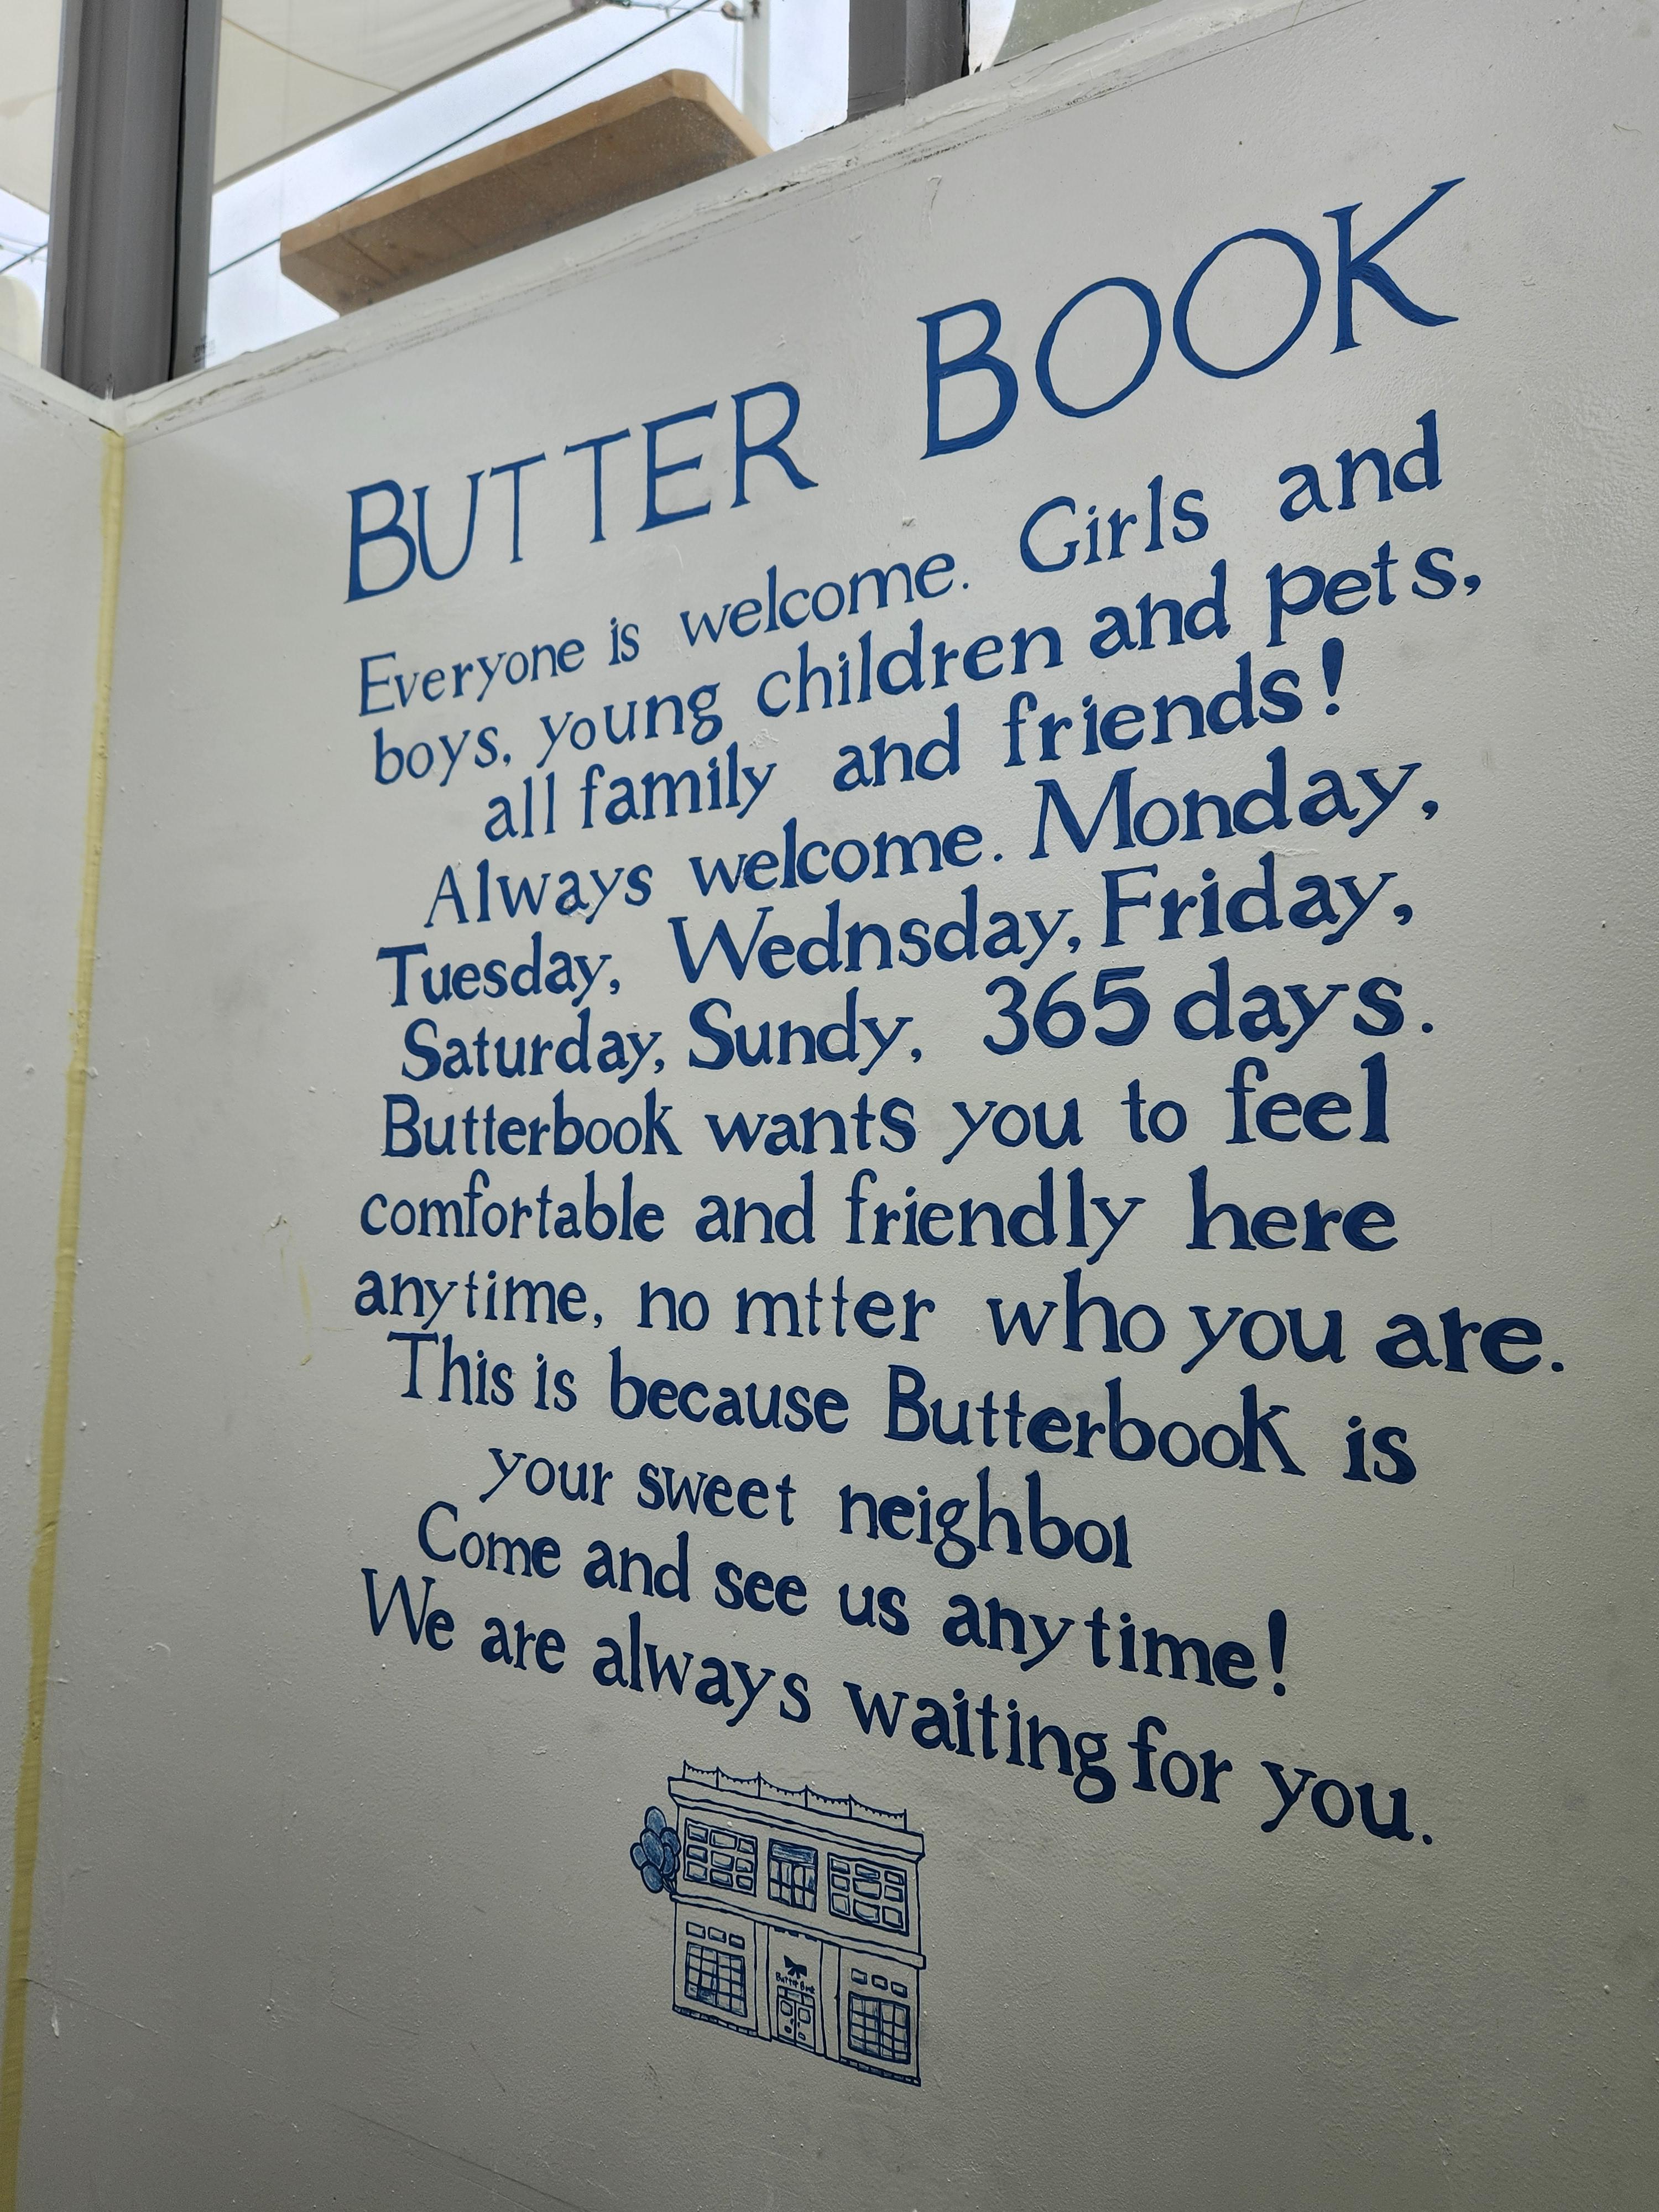 BUTTER BOOK
Everyone is welcome. Girls and
boys, young children and pets,
all family and friends!
Always welcome. Monday,
Tuesday, Wednsday, Friday,
Saturday, Sundy, 365 days.
Butterbook wants you to feel
comfortable and friendly here
anytime, no mtter who you are.
This is because Butterbook is
your sweet neighbor
Come and see us anytime!
We are always waiting for you.
Butter Book